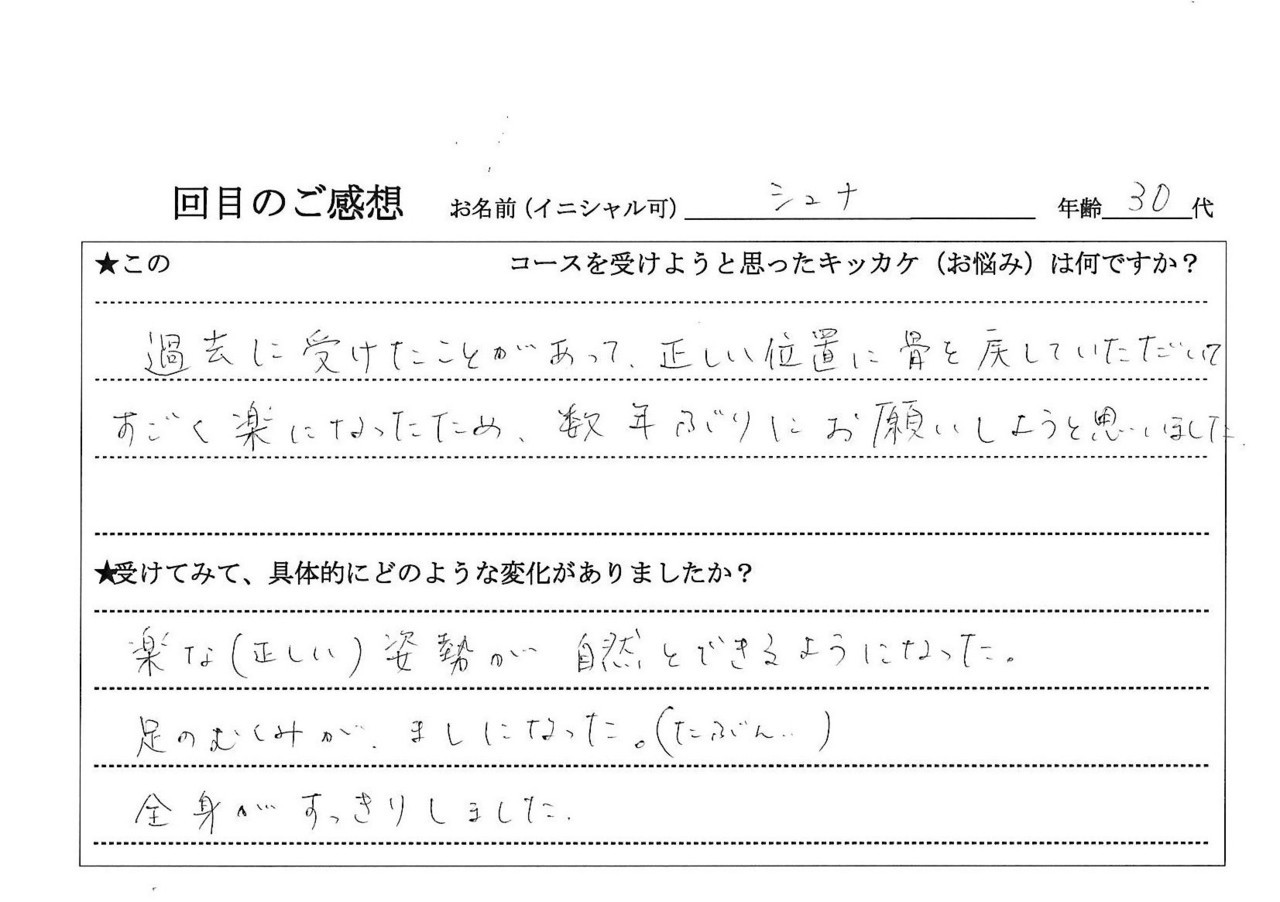 回目のご感想 お名前(イニシャル可) シュナ 年齢 30 代
★この コースを受けようと思ったキッカケ（お悩み）は何ですか？
過去に受けたことがあって、正しい位置に骨を戻していただいて
すごく楽になったため、数年ぶりにお願いしようと思いました。
★受けてみて、具体的にどのような変化がありましたか？
楽な(正しい)姿勢が自然とできるようになった。
足のむくみが、ましになった。(たぶん..)
全身がすっきりしました.